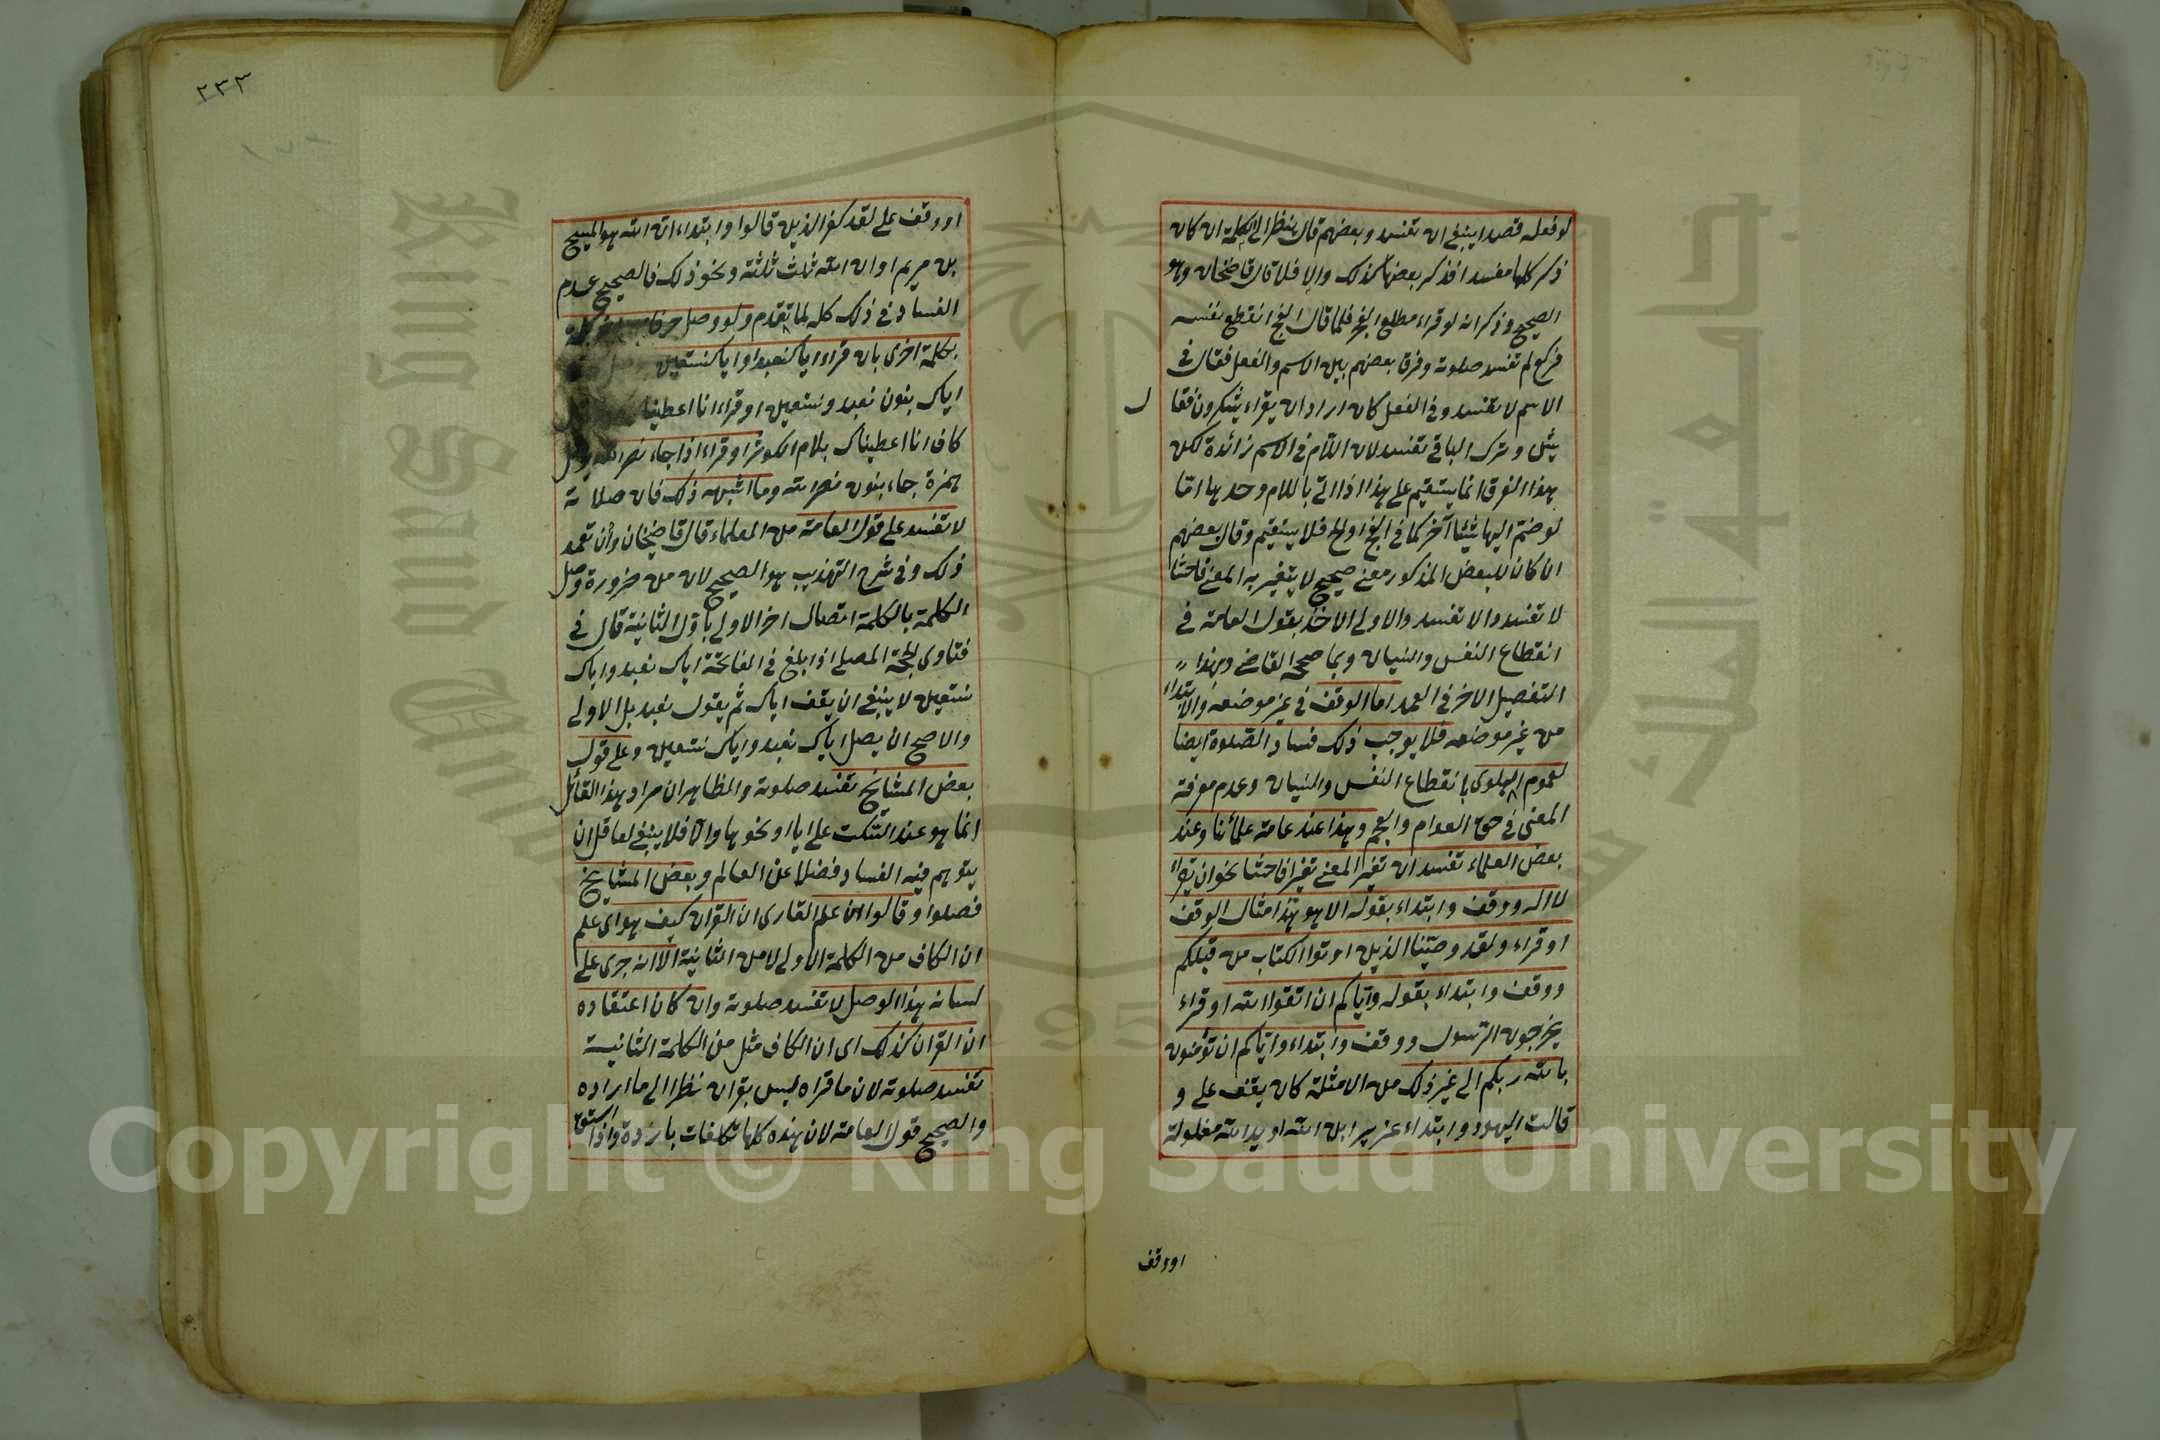 لو فعله قصدا ينبغى ان تفسد وبعضهم قال ينظر الى الكلمة ان كان
ذكر كلها مفسدا فذكر بعضها كذلك والا فلا قال قاضخان وهو
الصحيح وذكر انه لو قراء مطلع الفجر فلما قال الفج انقطع نفسه
فركع لم تفسد صلوته وفرق بعضهم بين الاسم والفعل فقال فى
الاسم لا تفسد وفى الفعل كان اراد ان يقراء يشكرون فقا
يش وترك الباقى تفسد لان اللام فى الاسم زائدة لكن
هذا الفرق انما يستقيم على هذا اذا اتى باللام وحدها امّا
لو ضم اليها شيئا آخر كما فى الفج اولح فلا يستقيم وقال بعضهم
ان كان للبعض المذكور معنى صحيح لا يتغير به المعنى فاحشا
لا تفسد والا تفسد والاولى الاخذ بقول العامة فى
انقطاع النفس والنسيان وبما صححه القاضى وبهذا
التفصيل الاخر فى العمد اما الوقف فى غير موضعه والابتداء
من غير موضعه فلا يوجب ذلك فساد الصّلوة ايضا
لعموم البلوى بانقطاع النفس والنسيان وعدم معرفة
المعنى فى حق العوام والعجم وهذا عند عامة علمائنا وعند
بعض العلماء تفسد ان تغير المعنى تغيرا فاحشا نحو ان يقراء
لا اله ووقف وابتداء بقوله الا هو هذا مثال الوقف
او قراء ولقد وصّينا الذين اوتوا الكتاب من قبلكم
ووقف وابتداء بقوله وايّاكم ان اتقوا الله او قراء
يخرجون الرّسول ووقف وابتداء وايّاكم ان تؤمنون
بالله ربكم الى غير ذلك من الامثلة كان يقف على و
قالت اليهود وابتداء عزير ابن الله او يد الله مغلولة
او وقف
٢٣٣
او وقف على لقد كفر الذين قالوا وابتداء ان الله هو المسيح
بن مريم او ان الله ثلث ثلثة ونحو ذلك فالصحيح عدم
الفساد فى ذلك كله لما تقدم ولو وصل حرفا
بكلمة اخرى بان قراء اياكنعبد او اياكنستعين
اياك بنون نعبد ونستعين او قراء انا اعطينا
كاف انا اعطيناك بلام الكوثر او قراء اذا جاء نصر الله
همزة جاء بنون نصر الله وما اشبه ذلك فان صلاته
لا تفسد على قول العامة من العلماء قال قاضيخان وان تعمد
ذلك وفى شرح التهذيب هو الصحيح لان من ضرورة وصل
الكلمة بالكلمة اتصال اخر الاولى باوّل الثانية قال فى
فتاوى الحجة المصلى اذا بلغ فى الفاتحة اياك نعبد واياك
نستعين لا ينبغى ان يقف اياك ثم يقول نعبد بل الاولى
والاصح ان يصل اياك نعبد واياك نستعين وعلى قول
بعض المشايخ تفسد صلوته والظاهر ان مراد هذا القائل
انما هو عند السّكت على ايا او نحوها والا فلا ينبغى لعاقل ان
يتوهم فيه الفساد فضلا عن العالم وبعض المشايخ
فصلوا وقالوا ان علم القارى ان القران كيف هو اى علم
ان الكاف من الكلمة الاولى لا من الثانية الّا انه جرى على
لسانه هذا الوصل لا تفسد صلوته وان كان اعتقاده
ان القران كذلك اى ان الكاف مثل من الكلمة الثانية
تفسد صلوته لان ما قراه ليس بقران نظرا الى ما اراده
والصحيح قول العامة لان هذه كلها تكلفات باردة واذا
Copyright © King Saud University
King Saud University
جامعة الملك سعود
1957